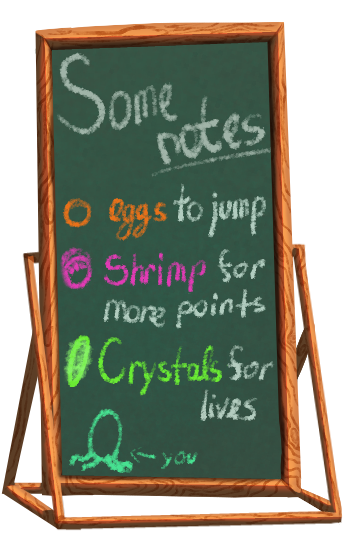 Some
notes
eggs to jump
Shrimp for
more points
Crystals for
lives
you